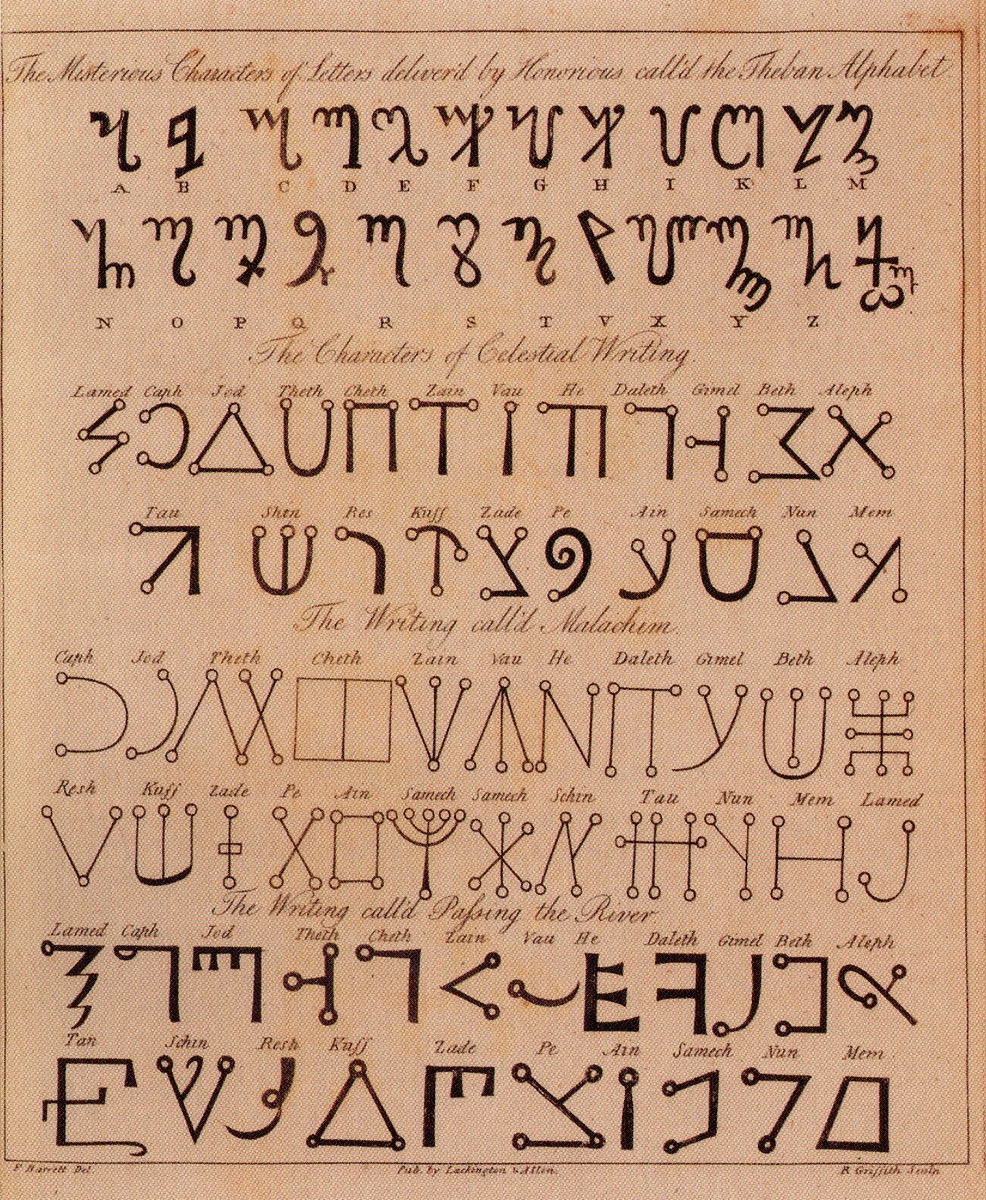 The Misterious Characters of Letters deliver'd by Honorious call'd the Theban Alphabet
A B C D E F G H I K L M
N O P Q R S T V X Y Z
The Characters of Celestial Writing.
Lamed Caph Jod Theth Cheth Zain Vau He Daleth Gimel Beth Aleph
Tau Shin Res Kuff Zade Pe Ain Samech Nun Mem
The Writing call'd Malachim.
Caph Jod Theth Cheth Zain Vau He Daleth Gimel Beth Aleph
Resh Kuff Zade Pe Ain Samech Samech Schin Tau Nun Mem Lamed
The Writing call'd Paſsing the River
Lamed Caph Jod Theth Cheth Zain Vau He Daleth Gimel Beth Aleph
Tau Schin Resh Kuff Zade Pe Ain Samech Nun Mem
F Barrett Del.
Pub. by Lackington & Allen.
R Griffith Sculp